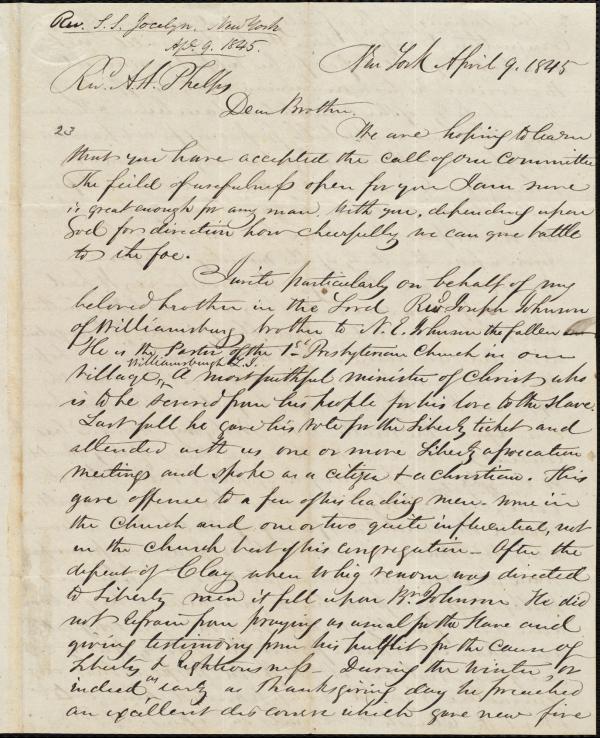 Rev. S. S. Jocelyn. New York
Ap. 9. 1845.
New York April 9. 1845
Revd. A. A. Phelps
Dear Brother,
23
We are hoping to learn
that you have accepted the call of our committee
The field of usefulness open for you I am sure
is great enough for any man. With you, depending upon
God for direction how cheerfully we can give battle
to the foe.
I write particularly on behalf of my
beloved brother in the Lord Revd. Joseph Johnson
of Williamsburg brother to N. E. Johnson the fallen
He is the Pastor of the 1st Presbyterian Church in our
Williamsburgh L.I.
village, A most faithful minister of Christ who
is to be severed from his people for his love to the slave.
Last fall he gave his vote for the Liberty ticket and
attended with us one or more Liberty association
meetings and spoke as a citizen & a christian. This
gave offence to a few of his leading men. some in
the Church and one or two quite influential, not
in the church but of his congregation – After the
defeat of Clay when Whig venom was directed
to Liberty men it fell upon Br. Johnson. He did
not refrain from praying as usual for the slave and
giving testimony from his pulpit for the cause of
Liberty & righteousness – During the winter, or
indeed as early as Thanksgiving day he preached
an excellent discourse which gave new fire